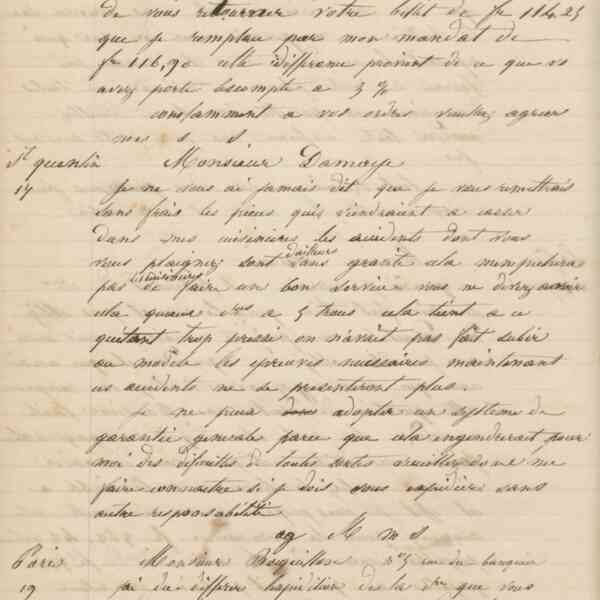 de vous retourner votre billet de fr 184.25
que je remplace par mon mandat de
fr 116,90 cette différence provient de ce que vs
avez porté escompte à 3 %
constamment a vos ordres veuillez agréer
mes s s
St quentin Monsieur Damaye
17 Je ne vous ai jamais dit que je vous remettrais
sans frais les pièces qui viendraient a casser
dans mes cuisinières les accidents dont vous
vous plaignez sont d'ailleurs sans gravité cela n'empechera
pas cuisinières de faire un bon service vous ne devez avoir
cela qu'aux à 5 trous cela tient a ce
qu'étant trop pressé on n'avait pas fait subir
au modèle les épreuves nécessaires maintenant
ces accidents ne se présenteront plus.
Je ne puis adopter un système de
garantie générale parce que cela engendrerait pour
moi des difficultés de toutes sortes veuillez donc me
faire connaitre si je dois vous expédier sans
autre responsabilité
ag M m s
Paris Monsieur Bouquillon rue du banquier
19 j'ai du différer l'expédition de la que vous